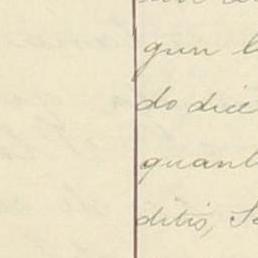 gun l
do dice
quant
ditis, S